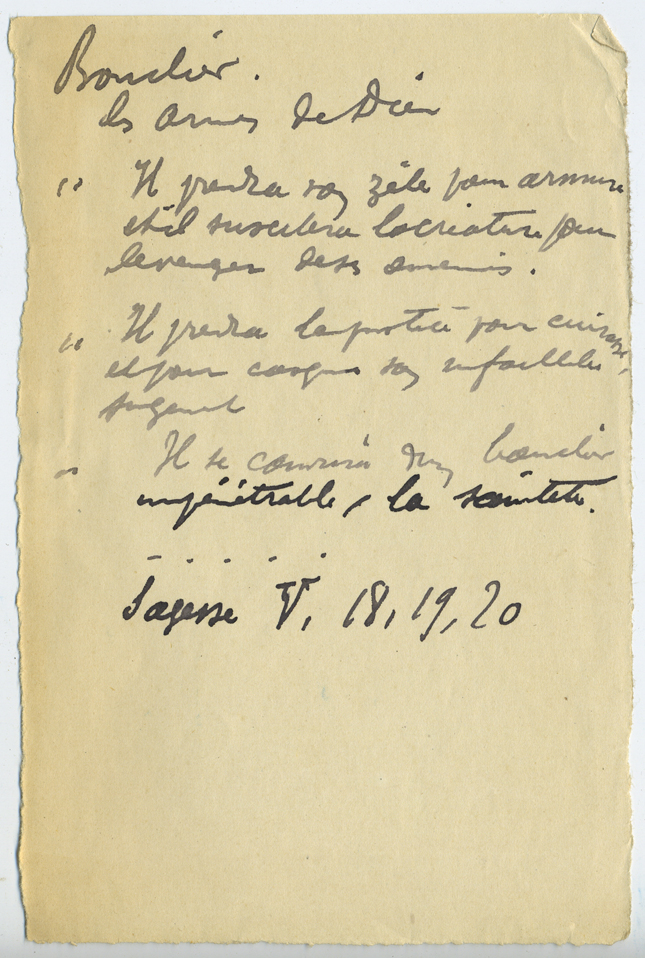 Bouclier.
les armes de Dieu
" Il prendra son zèle pour armure
et il suscitera la créature pour
le venger de ses ennemis.
" Il prendra la justice pour cuirasse,
et pour casque son infaillible
jugement
" Il se couvrira d'un bouclier
impénétrable, la sainteté.
- . . . .
Sagesse V, 18, 19, 20